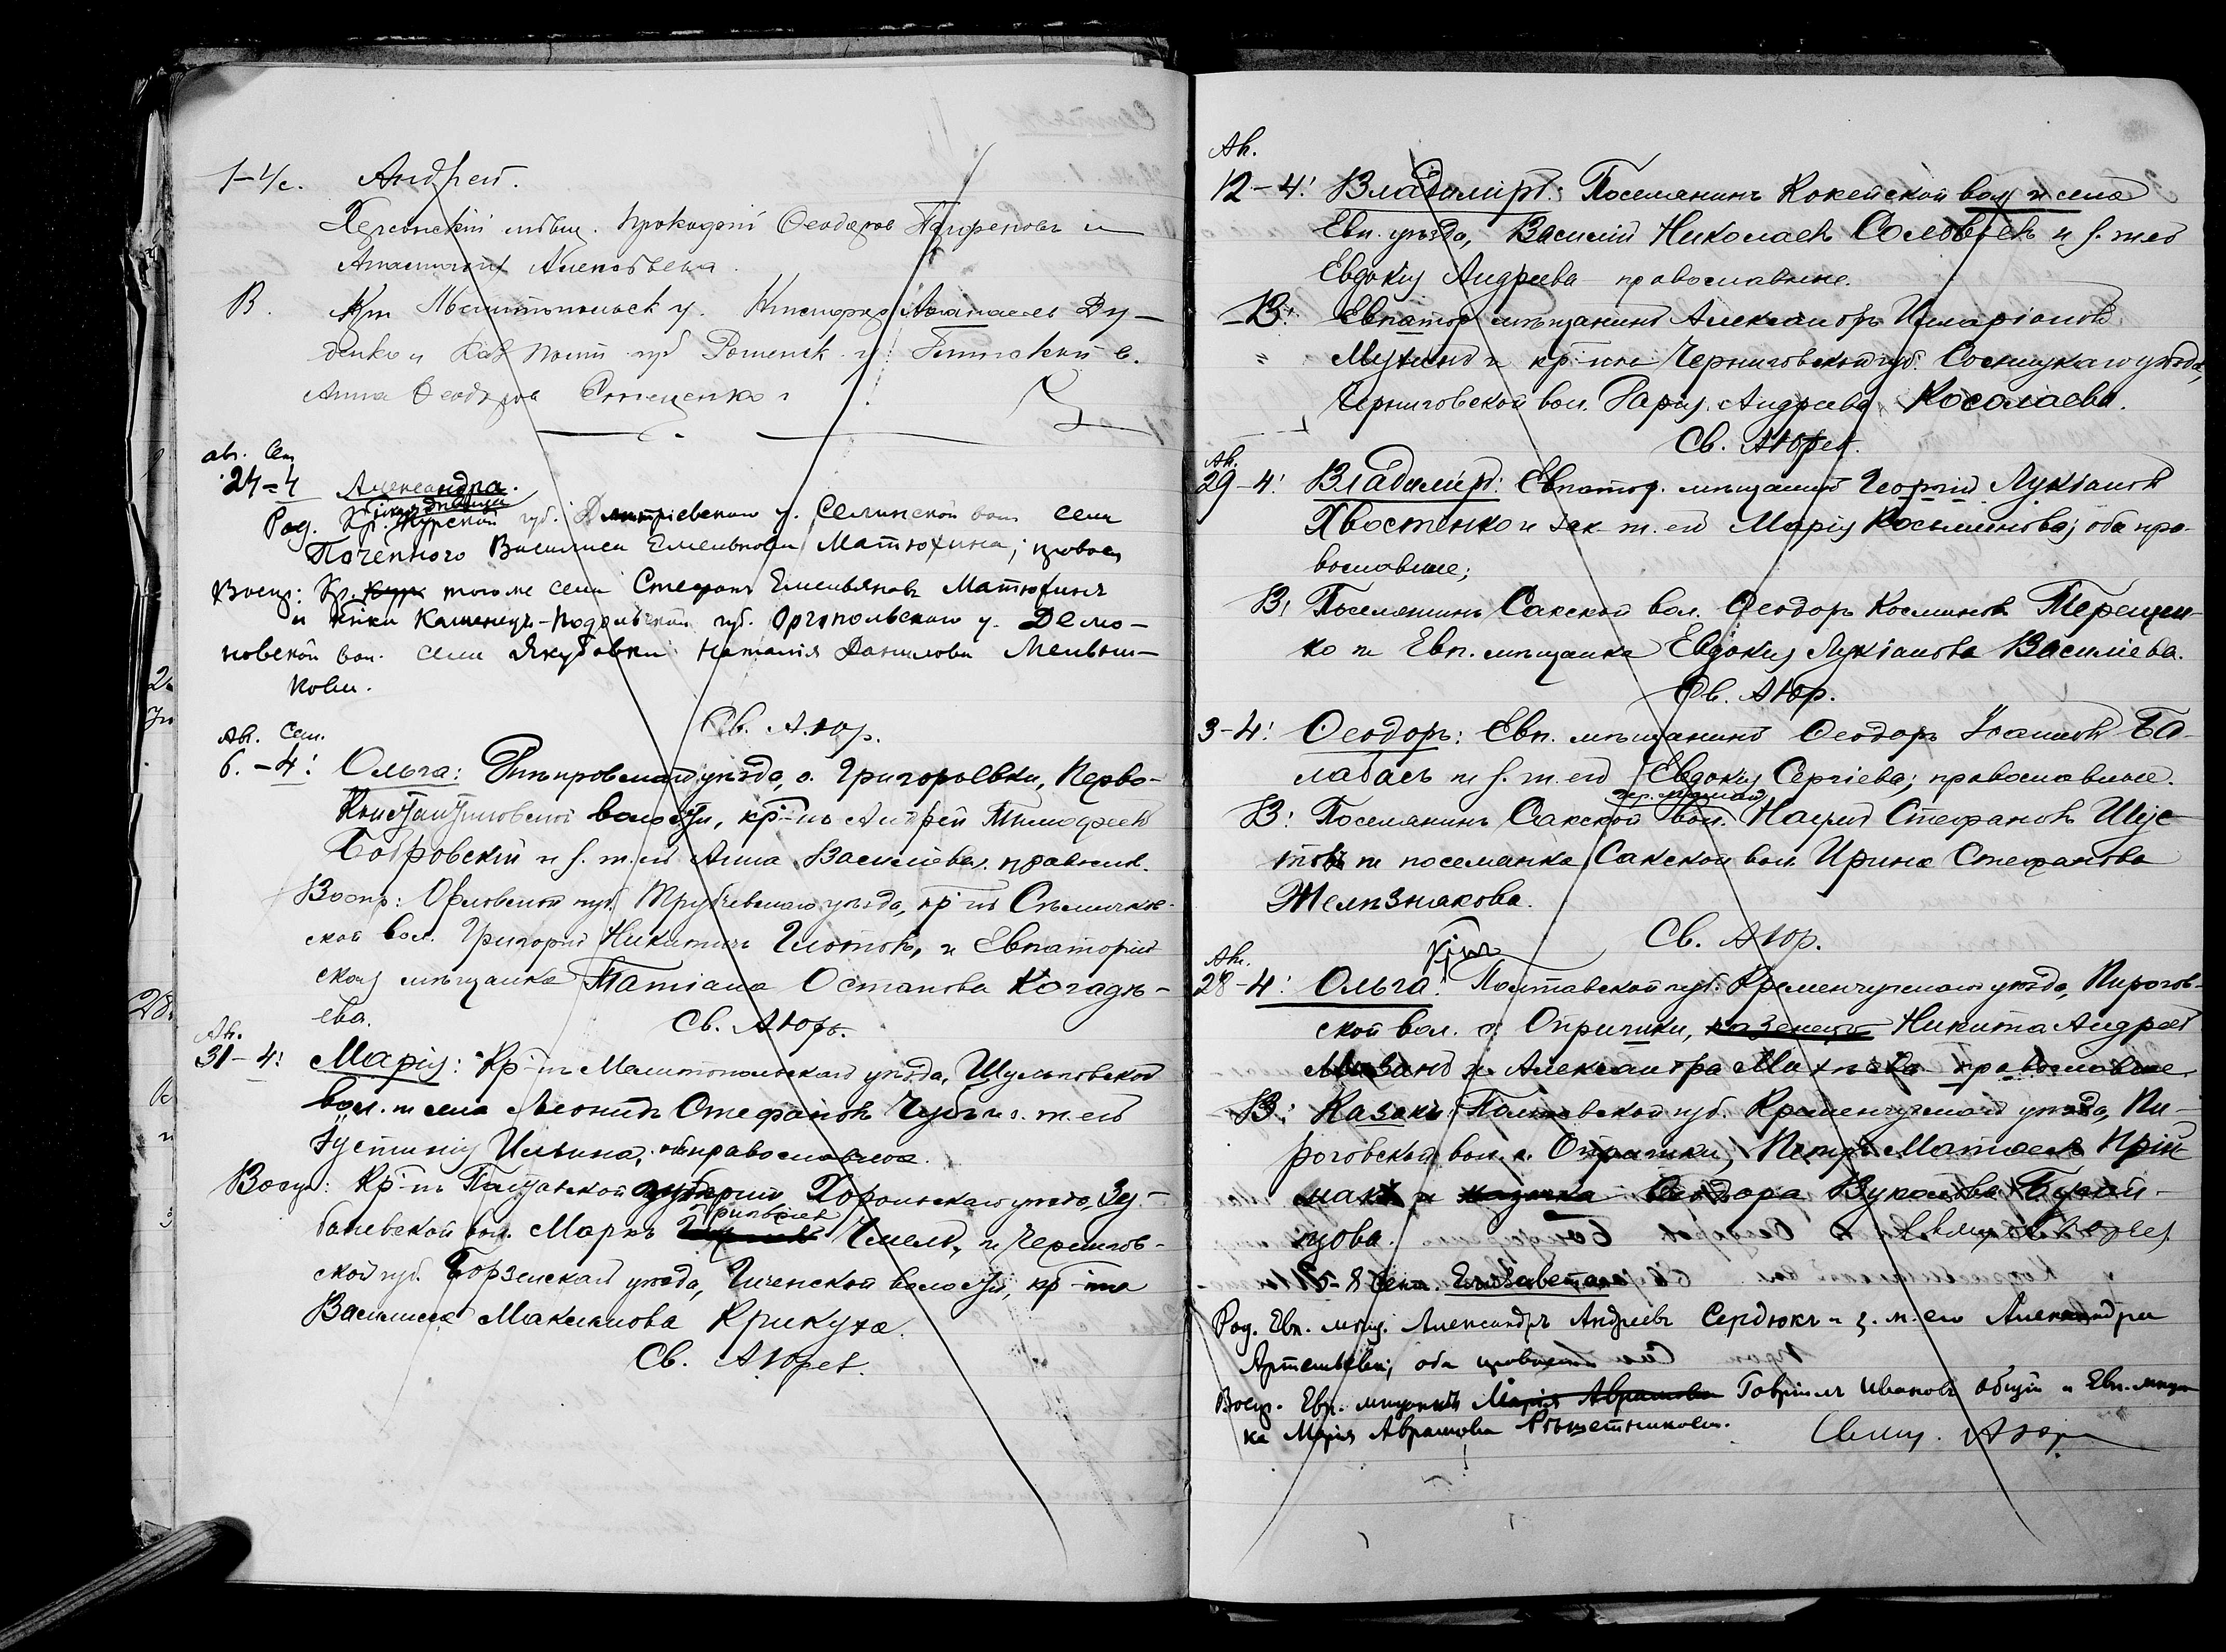 1–4/с. Андрей.
Херсонскій мѣщ. Прокофій Ѳеодоров Парфеновъ и
Анастасія Алексѣева.
В. Кр. Мелитопольск у. Аѳанасьев Ду-
денко и Полт губ Роменск. у. с.
Анна Ѳеодорова Стеценко
ав. Сен
24=4 Александра.
дѣвица
Род. Кр. Курской губ. Дмитріевскаго у. Селинской вол. села
Поченного Василиса Емельянова Матюхина; правосл
Воспр: Кр. того же села Стефанъ Емельяновъ Матюхинъ
и Каменецъ-Подольской губ. у. Демо-
новской вол. села Якубовки Наталія Данилова Мельни-
кова.
Св. А. Юр.
Ав. Сен.
6. – 4: Ольга: Днѣпровскаго уѣзда, с. Григорьевки, Перво-
Константиновской волости, кр-нъ Андрей Тимофеев
Бобровскій и з. ж. ег Анна Василіева. правосл.
Воспр: Орловской губ. Трубчевскаго уѣзда, кр-нъ Сѣлечков-
ской вол. Григорій Никитинъ Глотовъ, и Евпаторій
ская мѣщанка Татіана Остапова Когадѣ-
ева. Св. А Юрь.
Ав.
31 – 4: Марія: Кр-нъ Мелитопольскаго уѣзда, Шульговской
вол. и села Леонидъ Стефановъ Чубъ и з. ж. его
Іустинія Ильина; православные.
Воспр: Кр-нъ Полтавской губерніи, Хорольскаго уѣзда, Зу-
баневской вол. Маркъ Чмель, и Чернигов-
ской губ. Борзенскаго уѣзда, Иченской волости, кр-ка
Василиса Максимова Крикуха.
Св. А Юрьев.
Ав.
12 – 4: Владиміръ: Поселянинъ Кокейской вол. и села
Евп. уѣзда, Василій Николаевъ Соловьевъ и з. ж. его
Евдокія Андреева православные.
В: Евпатор мѣщанинъ Александръ Иларіоновъ
Мухинъ и кр-нка Черниговской губ. Сосницкаго уѣзда,
Черниговской вол. Дарія Андреева Косолаева.
Св. А Юрьев.
Ав.
29 – 4: Владиміръ: Евпатор. мѣщанинъ Георгій Лукіановъ
Хвостенко и зак. ж. его Марія Косьминова; оба пра-
вославные;
В: Поселянинъ Сакской вол. Ѳеодоръ Косминовъ Терещен-
ко и Евп. мѣщанка Евдокія Лукіанова Василіева.
Св. А Юр.
3 – 4: Ѳеодоръ: Евп. мѣщанинъ Ѳеодоръ Іоанновъ Ба-
лабасъ и з. ж. его Евдокія Сергіева; православные.
В: Поселянинъ Сакской вол. Наумъ Стефановъ Шус-
товъ и поселянка Сакской вол. Ирина Стефанова
Желѣзнякова.
Св. А Юр.
Ав.
28 – 4: Ольга: Полтавской губ. Кременчугскаго уѣзда, Пирогов-
ской вол. с. Опришки, Никита Андреев
и Александра Махнева православные.
В: Казакъ Полтавской губ. Кременчугскаго уѣзда, Пи-
роговской вол. с. Опришки, Петръ Матвеевъ Прій-
макъ и Ѳеодора Вуколова Бугай-
цова. Свящ А Юрьев
5 – 8 Сент. Елизавета
Род. Евп. мѣщ. Александръ Андреевъ Сердюкъ и з. ж. его Александра
Артемьева; оба православ
Воспр. Евп. мѣщанинъ Марія Аврамова Гавріилъ Ивановъ и Евп. мѣщан
ка Марія Аврамова Рѣшетникова.
Свящ. А Юрь